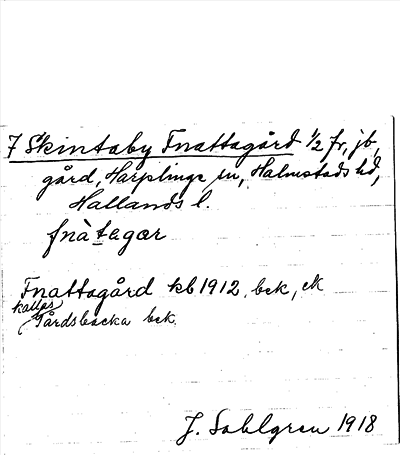 7 Skintaby Fnattagård 1/2 fr, jb,
gård, Harplinge sn, Halmstads hd,
Hallands l.
fnàtegær
Fnattagård kb 1912, bek, ek
kallas
Gårdsbacka bek.
J. Sahlgren 1918